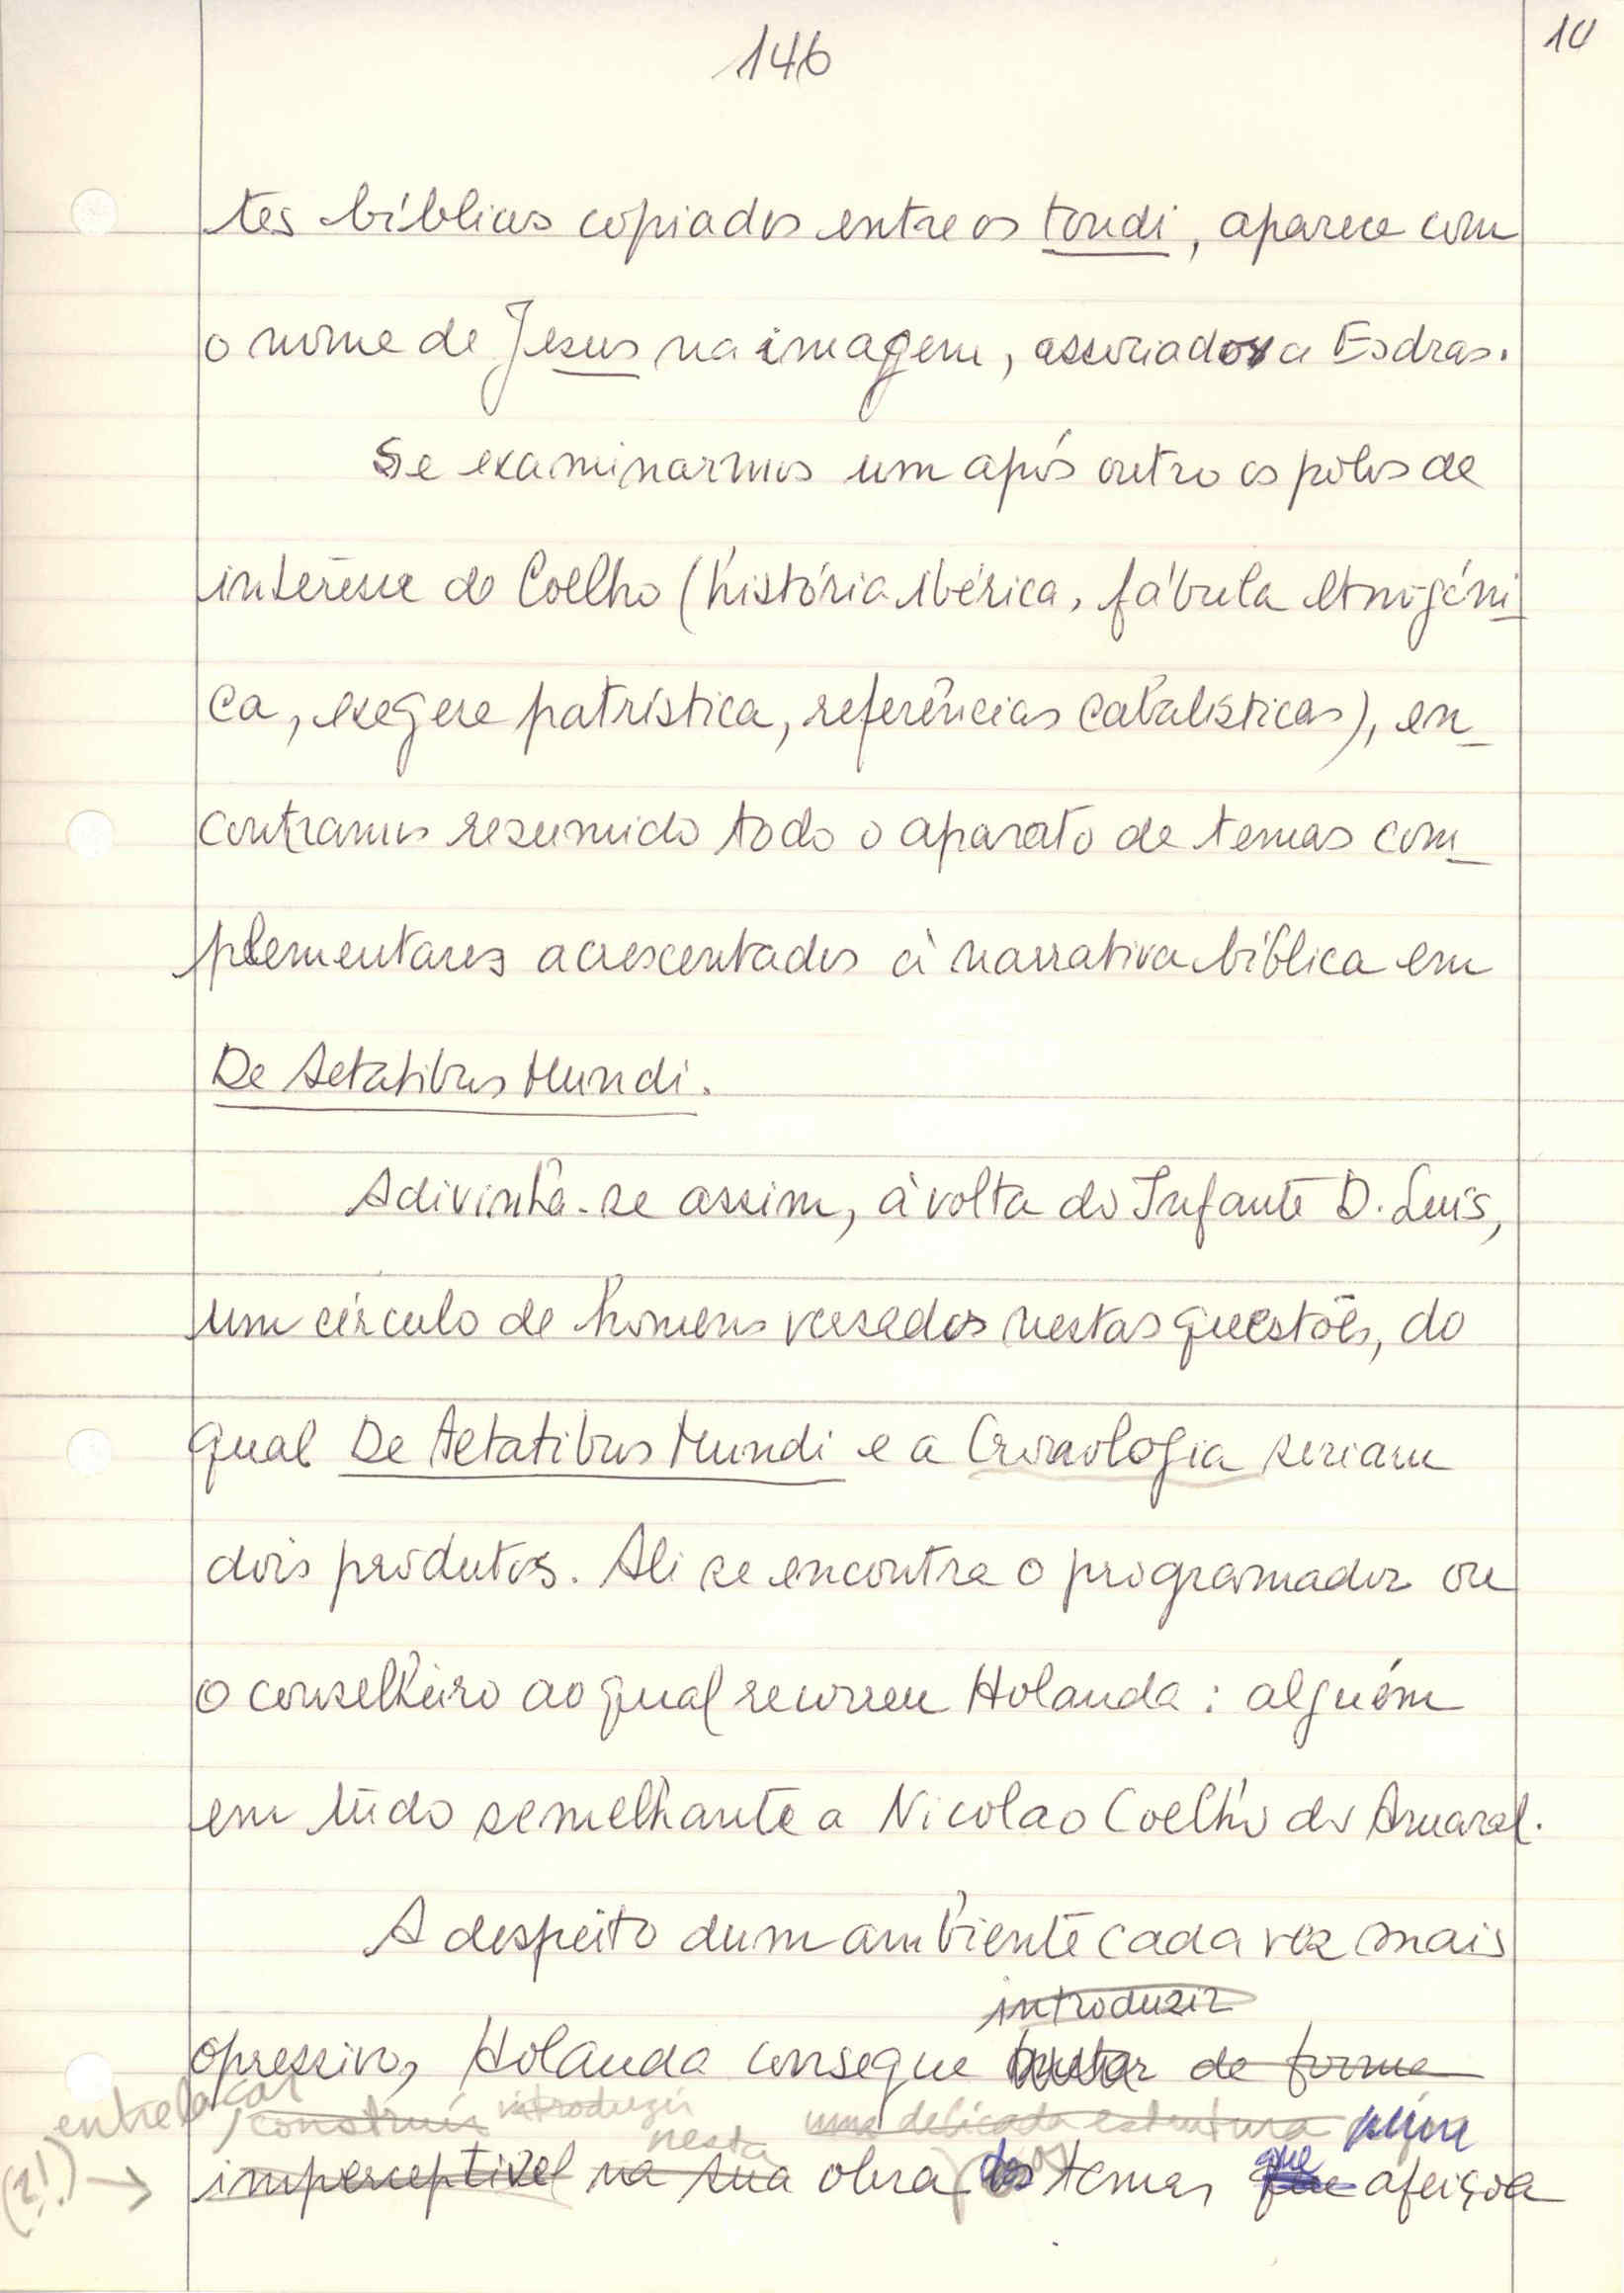 146
10
tes bíblicos copiados entre os tondi, aparece com
o nome de Jesus na imagem, associado a Esdras.
Se examinarmos um após outro os pólos de
interêsse do Coelho (história ibérica, fábula etnogéni
ca, exegese patrística, referências cabalísticas), en-
contramos resumido todo o aparato de temas com-
plementares acrescentados à narrativa bíblica em
De Aetatibus Mundi.
Adivinha-se assim, à volta do Infante D. Luís,
um círculo de homens versados nestas questões, do
qual De Aetatibus Mundi e a Cronologia seriam
dois produtos. Ali se encontra o programador ou
o conselheiro ao qual recorreu Holanda: alguém
em tudo semelhante a Nicolao Coelho do Amaral.
A despeito dum ambiente cada vez mais
introduzir
opressivo, Holanda consegue de forma
entrelaçar construir introduzir nesta uma delicada estrutura
(?!) → imperceptível na sua obra dos temas que afeiçoa